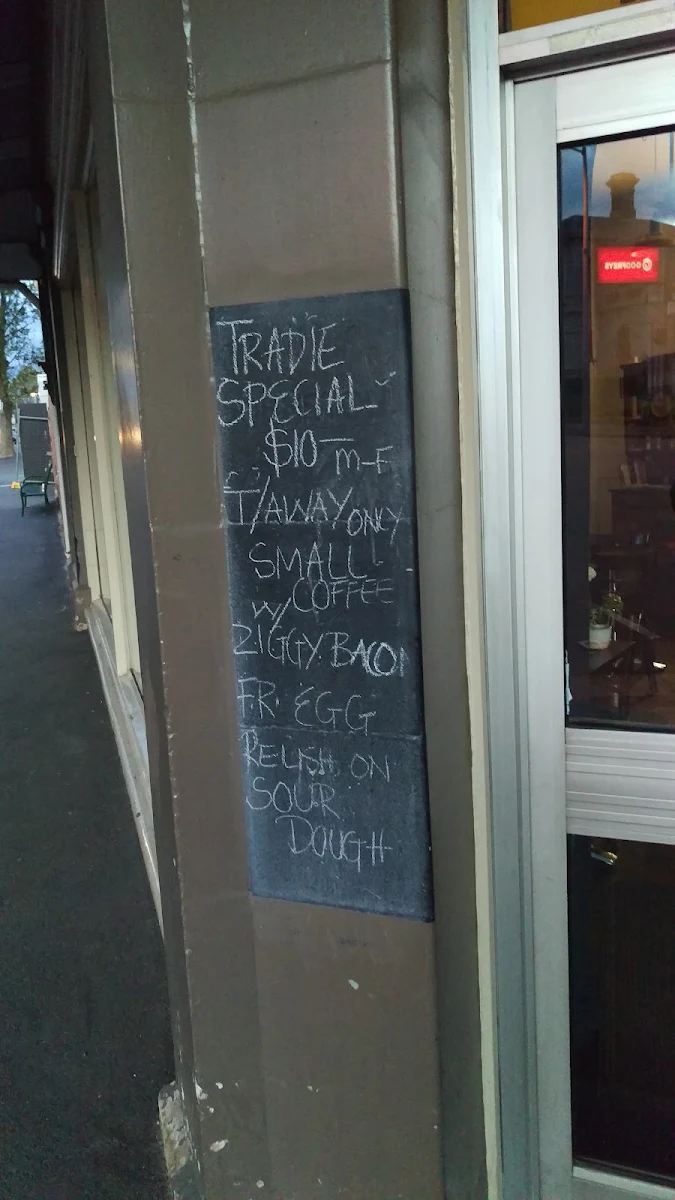 TRADIE
SPECIAL
$10 M-F
T/AWAY ONLY
SMALL
COFFEE
W/
ZIGGY BACON
FR. EGG
RELISH ON
SOUR
DOUGH
GODFREYS